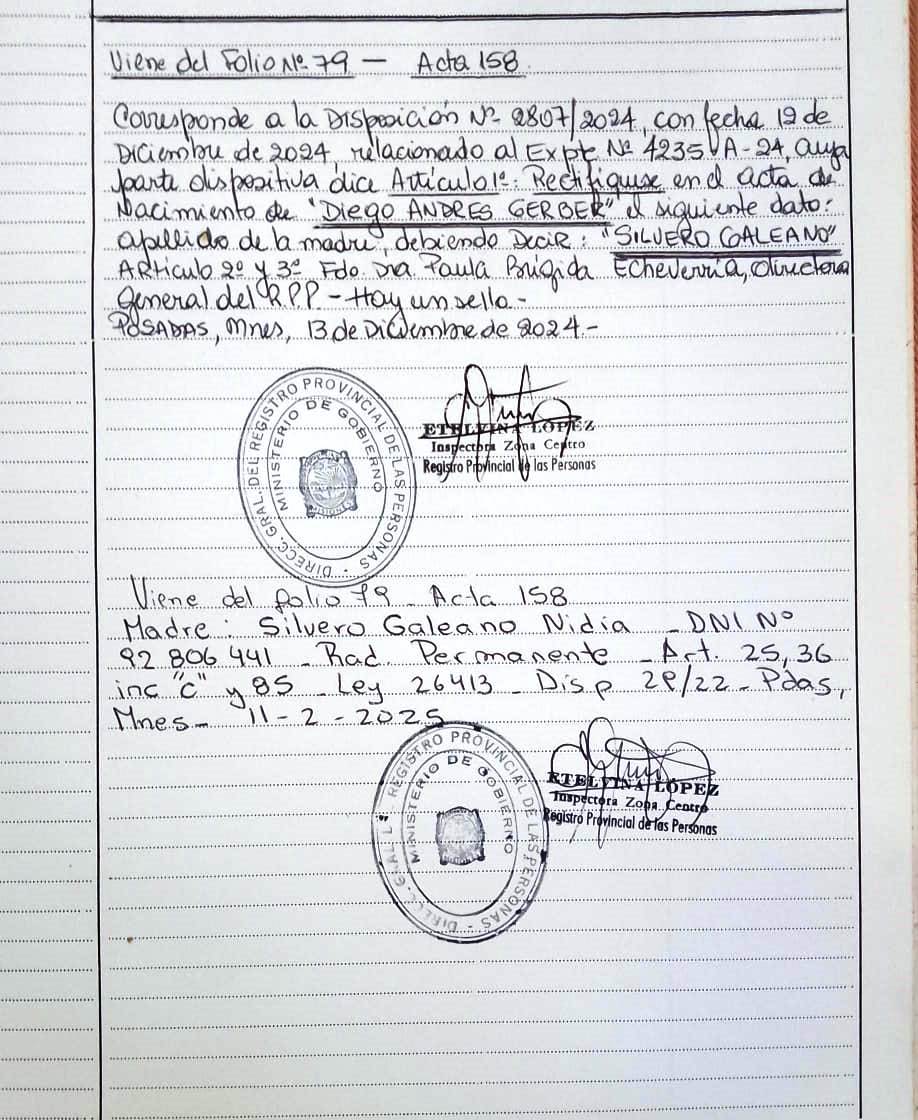 Viene del Folio Nº 79 — Acta 158.
Corresponde a la Disposición Nº 2807/2024, con fecha 12 de
Diciembre de 2024, relacionado al Expte Nº 4235 A-24, cuya
parte dispositiva dice Artículo 1º: Rectifiquese en el acta de
Nacimiento de "Diego ANDRES GERBER" el siguiente dato:
apellido de la madre, debiendo Decir: "SILVERO GALEANO"
ARticulo 2º y 3º Fdo. Dra Paula Brigida Echeverría, directora
general del R.P.P. - Hay un sello.-
POSADAS, Mnes, 13 de Diciembre de 2024.-
DIRECC. GRAL. DEL REGISTRO PROVINCIAL DE LAS PERSONAS
MINISTERIO DE GOBIERNO
ETELVINA LOPEZ
Inspectora Zona Centro
Registro Provincial de las Personas
Viene del folio 79 - Acta 158
Madre: Silvero Galeano Nidia - DNI Nº
92 806 441 - Rad. Permanente - Art. 25, 36
inc "c" y 85 - Ley 26413 - Disp 29/22 - Pdas,
Mnes - 11-2-2025
DIRECC. GRAL. REGISTRO PROVINCIAL DE LAS PERSONAS
MINISTERIO DE GOBIERNO
ETELVINA LÓPEZ
Inspectora Zona Centro
Registro Provincial de las Personas